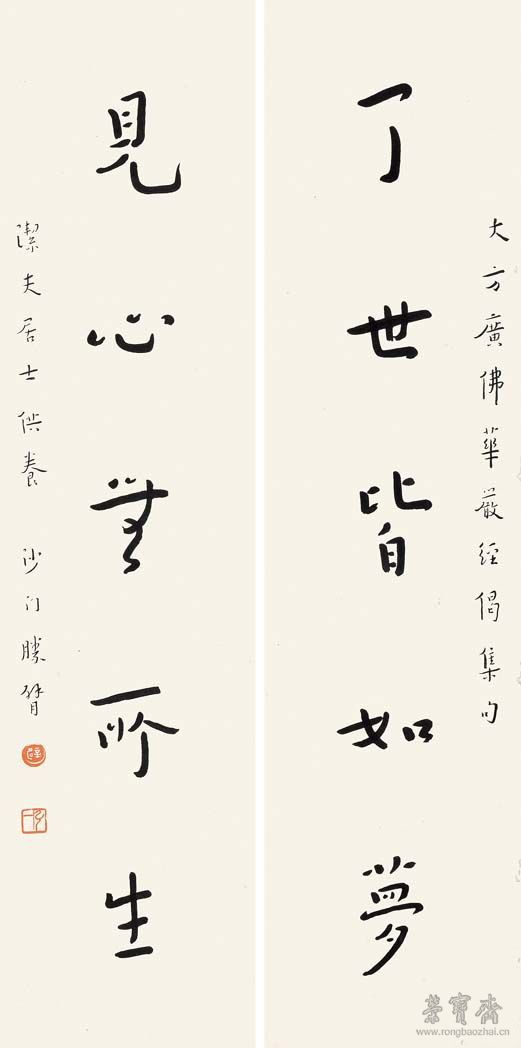 大方廣佛華嚴經偈集句
了世皆如夢
見心無所生
潔夫居士供養 沙門勝臂
榮寶齋
www.rongbaozhai.cn